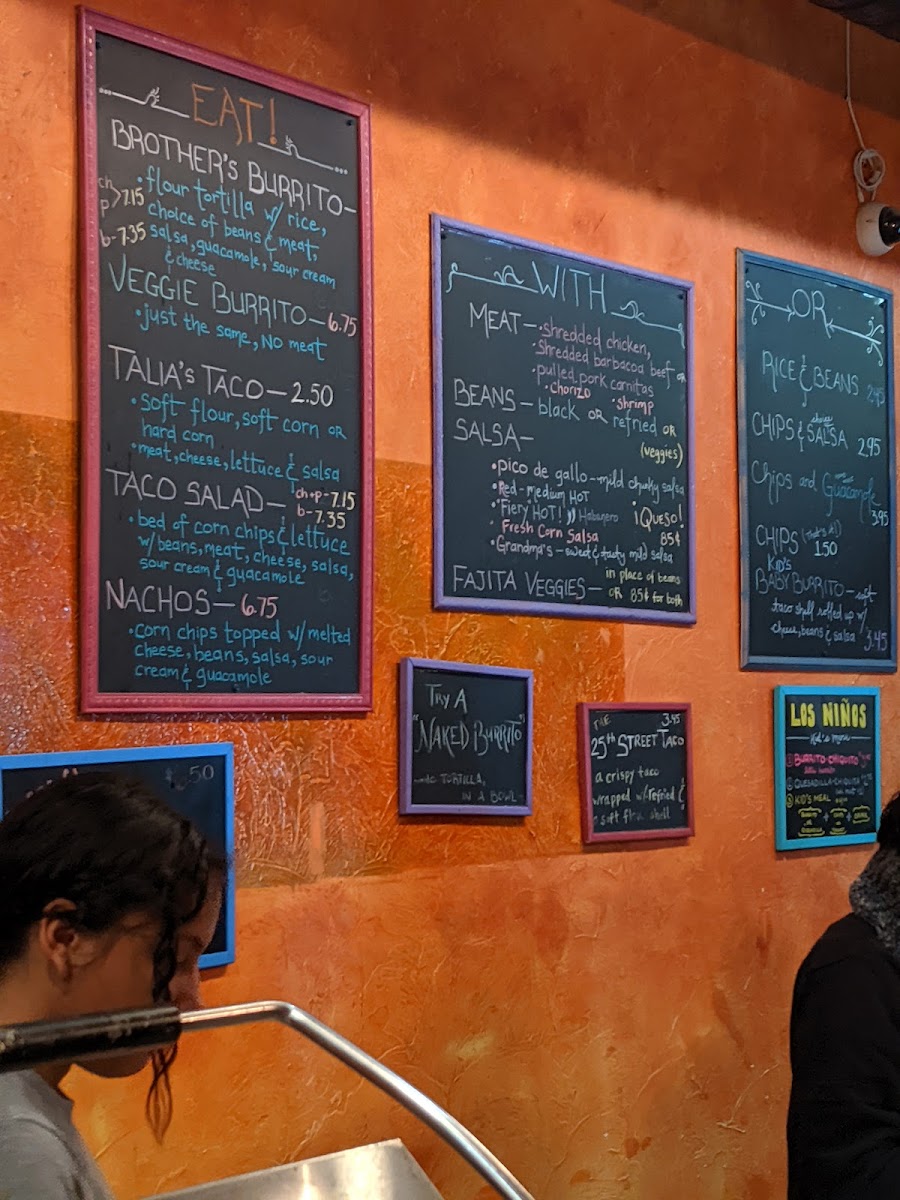 EAT!
BROTHER'S BURRITO-
ch
p > 7.15
b-7.35
•flour tortilla w/ rice,
choice of beans & meat,
salsa, guacamole, sour cream
& cheese
VEGGIE BURRITO-6.75
•just the same, NO meat
TALIA'S TACO-2.50
•soft flour, soft corn OR
hard corn
•meat, cheese, lettuce & salsa
TACO SALAD-ch+p-7.15
b-7.35
•bed of corn chips & lettuce
w/beans, meat, cheese, salsa,
sour cream & guacamole
NACHOS-6.75
•corn chips topped w/ melted
cheese, beans, salsa, sour
cream & guacamole
WITH
MEAT-•shredded chicken,
•Shredded barbacoa beef OR
•pulled pork carnitas
•chorizo •shrimp
BEANS-black OR refried OR
(veggies)
SALSA-
•pico de gallo--mild chunky salsa
•Red-medium HOT
•"Fiery HOT!)) Habanero
•Fresh Corn Salsa
¡QUESO!
85¢
•Grandma's-sweet & tasty mild salsa
FAJITA VEGGIES-in place of beans
OR 85¢ for both
OR
RICE & BEANS 2.95
CHIPS & SALSA 2.95
Chips and Guacamole
3.95
CHIPS (that's it!)
1.50
KID'S
BABY BURRITO-soft
taco shell rolled up w/
cheese, beans & salsa 3.45
TRY A
"NAKED BURRITO"
TORTILLA,
IN A BOWL
THE 3.45
25th STREET TACO
a crispy taco
wrapped w/refried &
a soft flour shell
LOS NIÑOS
Kid's Menu
① BURRITO-CHIQUITO
② QUESADILLA-CHIQUITA
③ KID'S MEAL
.50